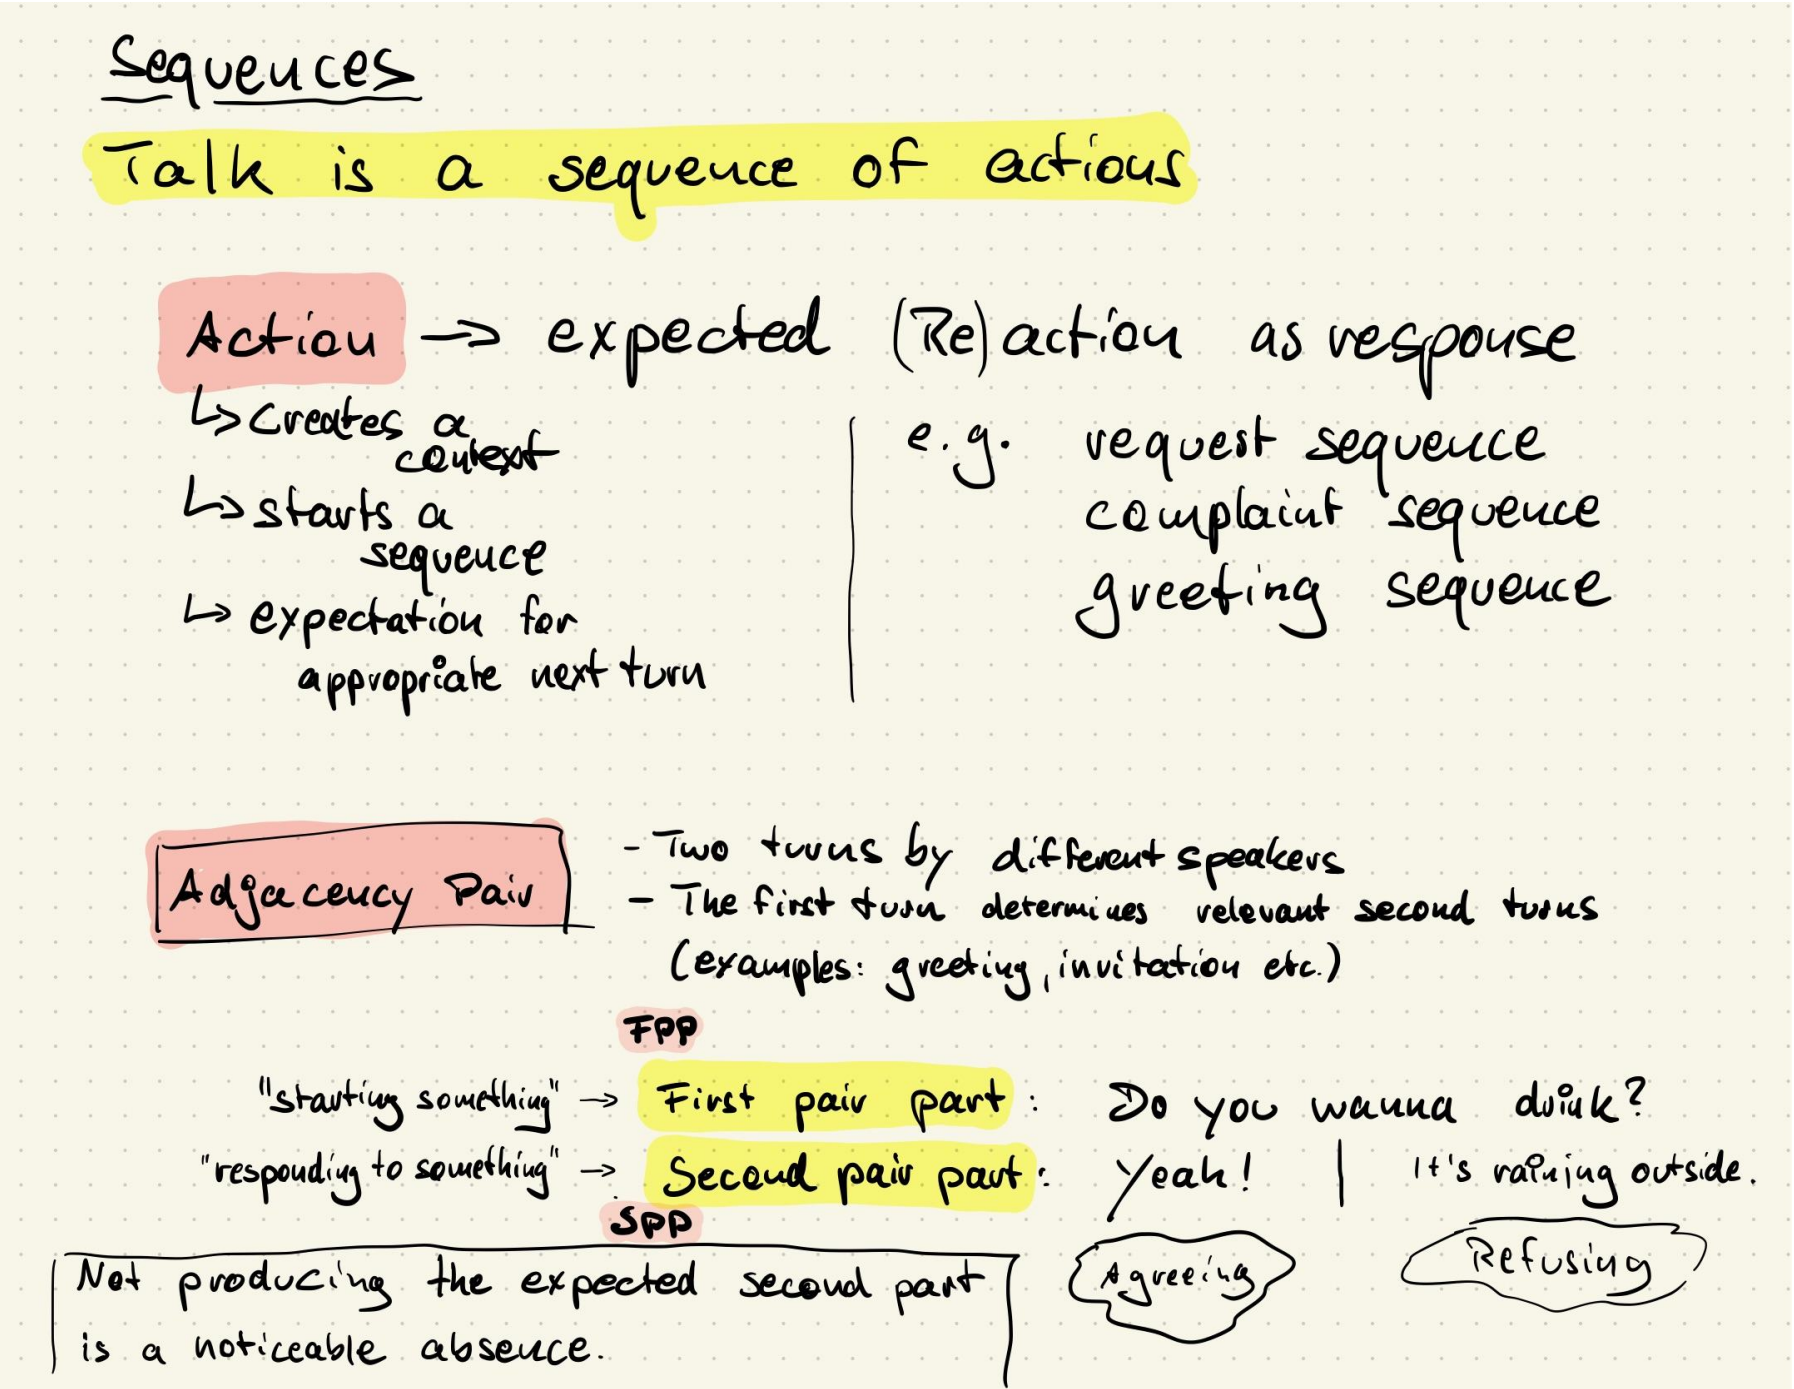 Sequences
Talk is a sequence of actions
Action → expected (Re)action as response
↳ creates a
context
↳ starts a
sequence
↳ expectation for
appropriate next turn
e.g. request sequence
complaint sequence
greeting sequence
Adjacency Pair
- Two turns by different speakers
- The first turn determines relevant second turns
(examples: greeting, invitation etc.)
FPP
"starting something" → First pair part: Do you wanna drink?
"responding to something" → Second pair part: Yeah! | It's raining outside.
SPP
Agreeing
Refusing
Not producing the expected second part
is a noticeable absence.